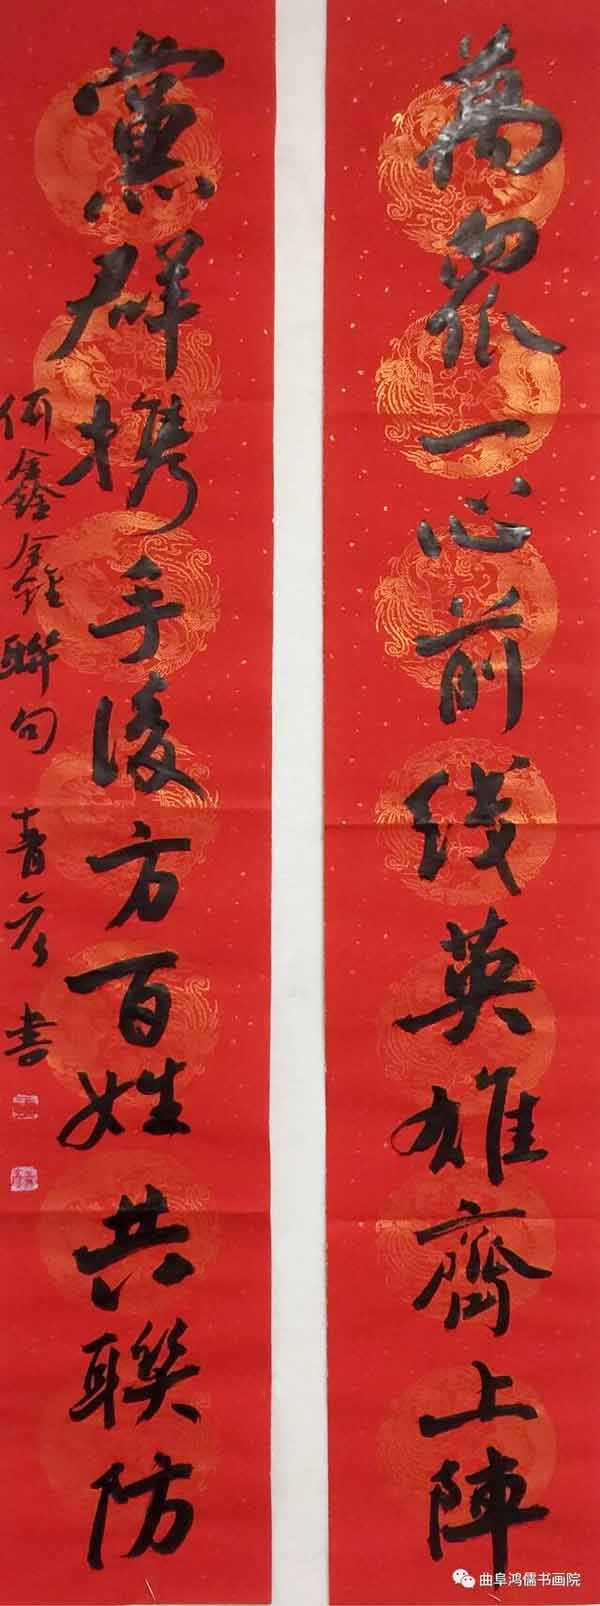 萬眾一心前线英雄齊上陣
黨群携手後方百姓共聯防
何鑫鑫聯句 青彦 书
曲阜鸿儒书画院